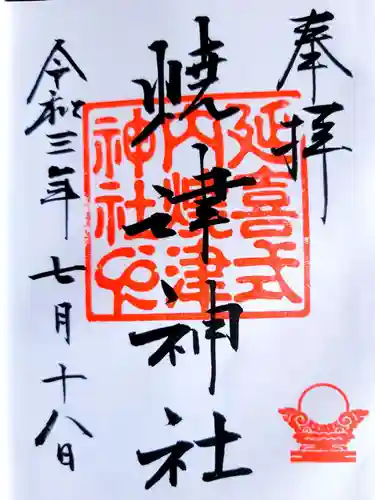 奉拝
延喜式
内焼津
神社
焼津神社
令和三年七月十八日